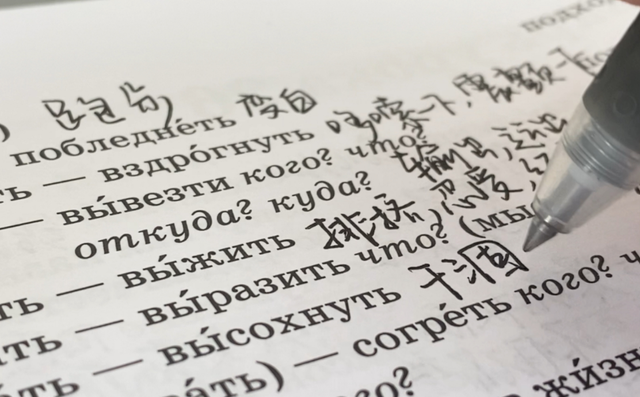 подхо
) 
побледне́ть 变白
ть — вздро́гнуть 哆嗦一下,震颤一下
— вы́везти кого? что? 输出,运出
откуда? куда?
ть — вы́жить 排挤
ить — вы́разить что? (мы
ть — вы́сохнуть 干涸
а́ть) — согре́ть кого? ч
ого? жи́зн